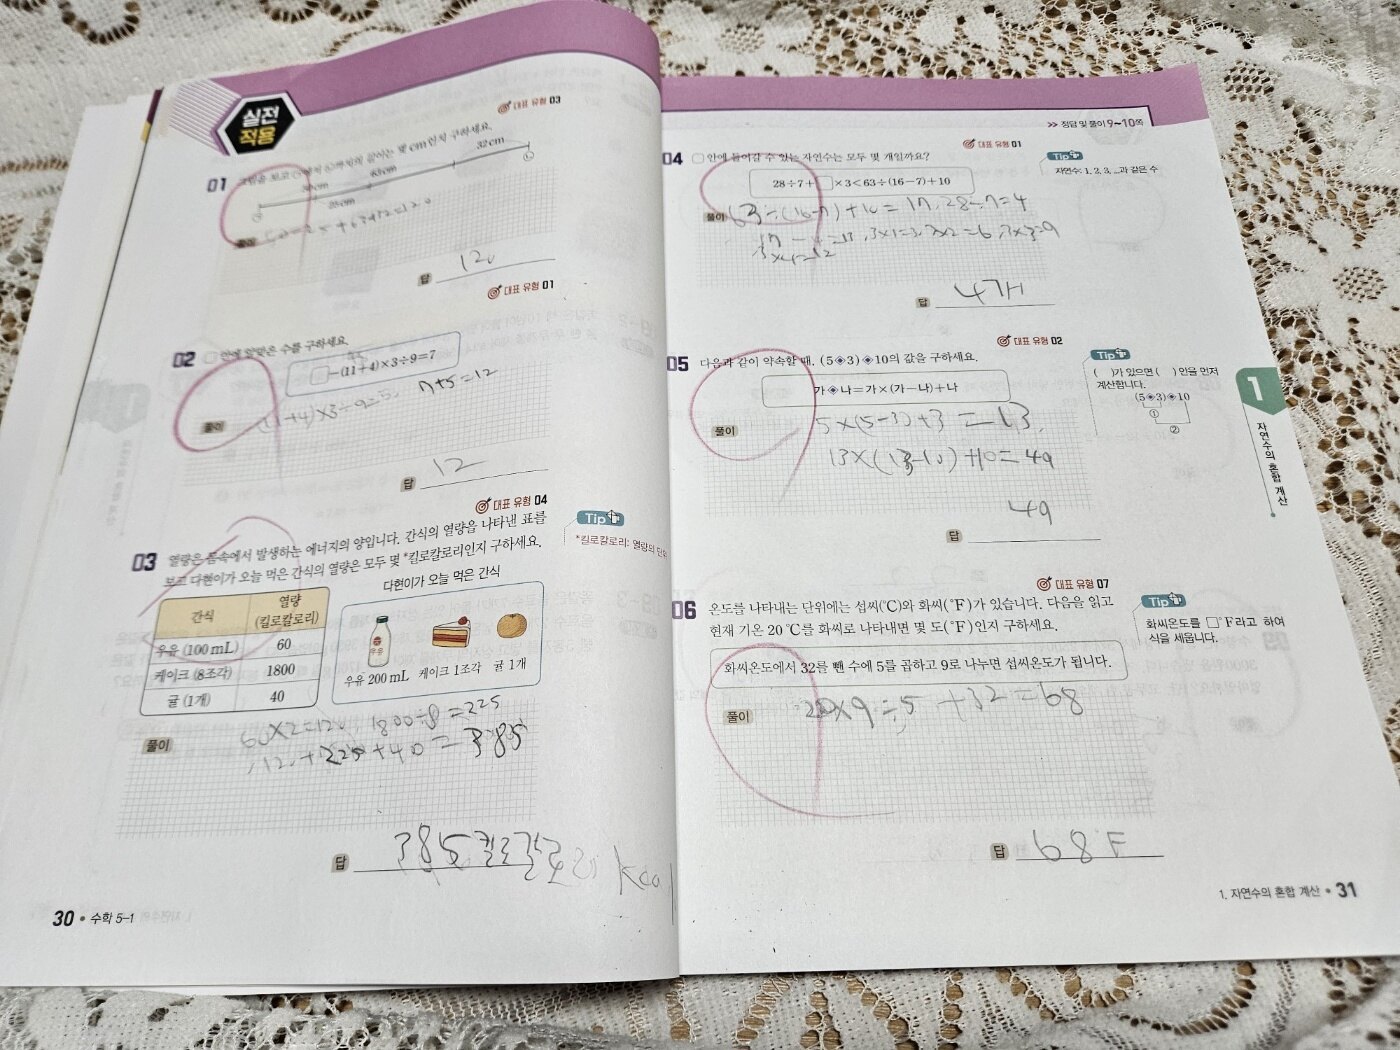 실전
적용
대표 유형 03
01
32cm
63cm
답 120
대표 유형 01
02 □ 안에 알맞은 수를 구하세요.
□−(11+4)×3÷9=7
(11+4)×3÷9=5, 7+5=12
풀이
답 12
대표 유형 04
03 열량은 몸속에서 발생하는 에너지의 양입니다. 간식의 열량을 나타낸 표를
보고 다현이가 오늘 먹은 간식의 열량은 모두 몇 *킬로칼로리인지 구하세요.
Tip
*킬로칼로리: 열량의 단위
간식 열량 (킬로칼로리)
우유 (100 mL) 60
케이크 (8조각) 1800
귤 (1개) 40
다현이가 오늘 먹은 간식
우유
우유 200 mL 케이크 1조각 귤 1개
풀이
60×2=120 1800÷8=225
120+225+40=385
답 385킬로칼로리 kcal
30 • 수학 5-1
>> 정답 및 풀이 9~10쪽
대표 유형 01
04 □ 안에 들어갈 수 있는 자연수는 모두 몇 개일까요?
28÷7+□×3<63÷(16−7)+10
Tip
자연수: 1, 2, 3, ...과 같은 수
풀이 63÷(16-7)+10=17, 28÷7=4
17-4=13, 3×1=3, 3×2=6, 3×3=9
3×4=12
답 4개
대표 유형 02
05 다음과 같이 약속할 때, (5◈3)◈10의 값을 구하세요.
가◈나=가×(가−나)+나
Tip
( )가 있으면 ( ) 안을 먼저
계산합니다.
(5◈3)◈10
①
②
풀이
5×(5-3)+3=13,
13×(13-10)+10=49
49
답
대표 유형 07
06 온도를 나타내는 단위에는 섭씨(°C)와 화씨(°F)가 있습니다. 다음을 읽고
현재 기온 20 °C를 화씨로 나타내면 몇 도(°F)인지 구하세요.
화씨온도에서 32를 뺀 수에 5를 곱하고 9로 나누면 섭씨온도가 됩니다.
Tip
화씨온도를 □°F라고 하여
식을 세웁니다.
풀이 20×9÷5+32=68
답 68°F
1
자연수의 혼합 계산
1. 자연수의 혼합 계산 • 31